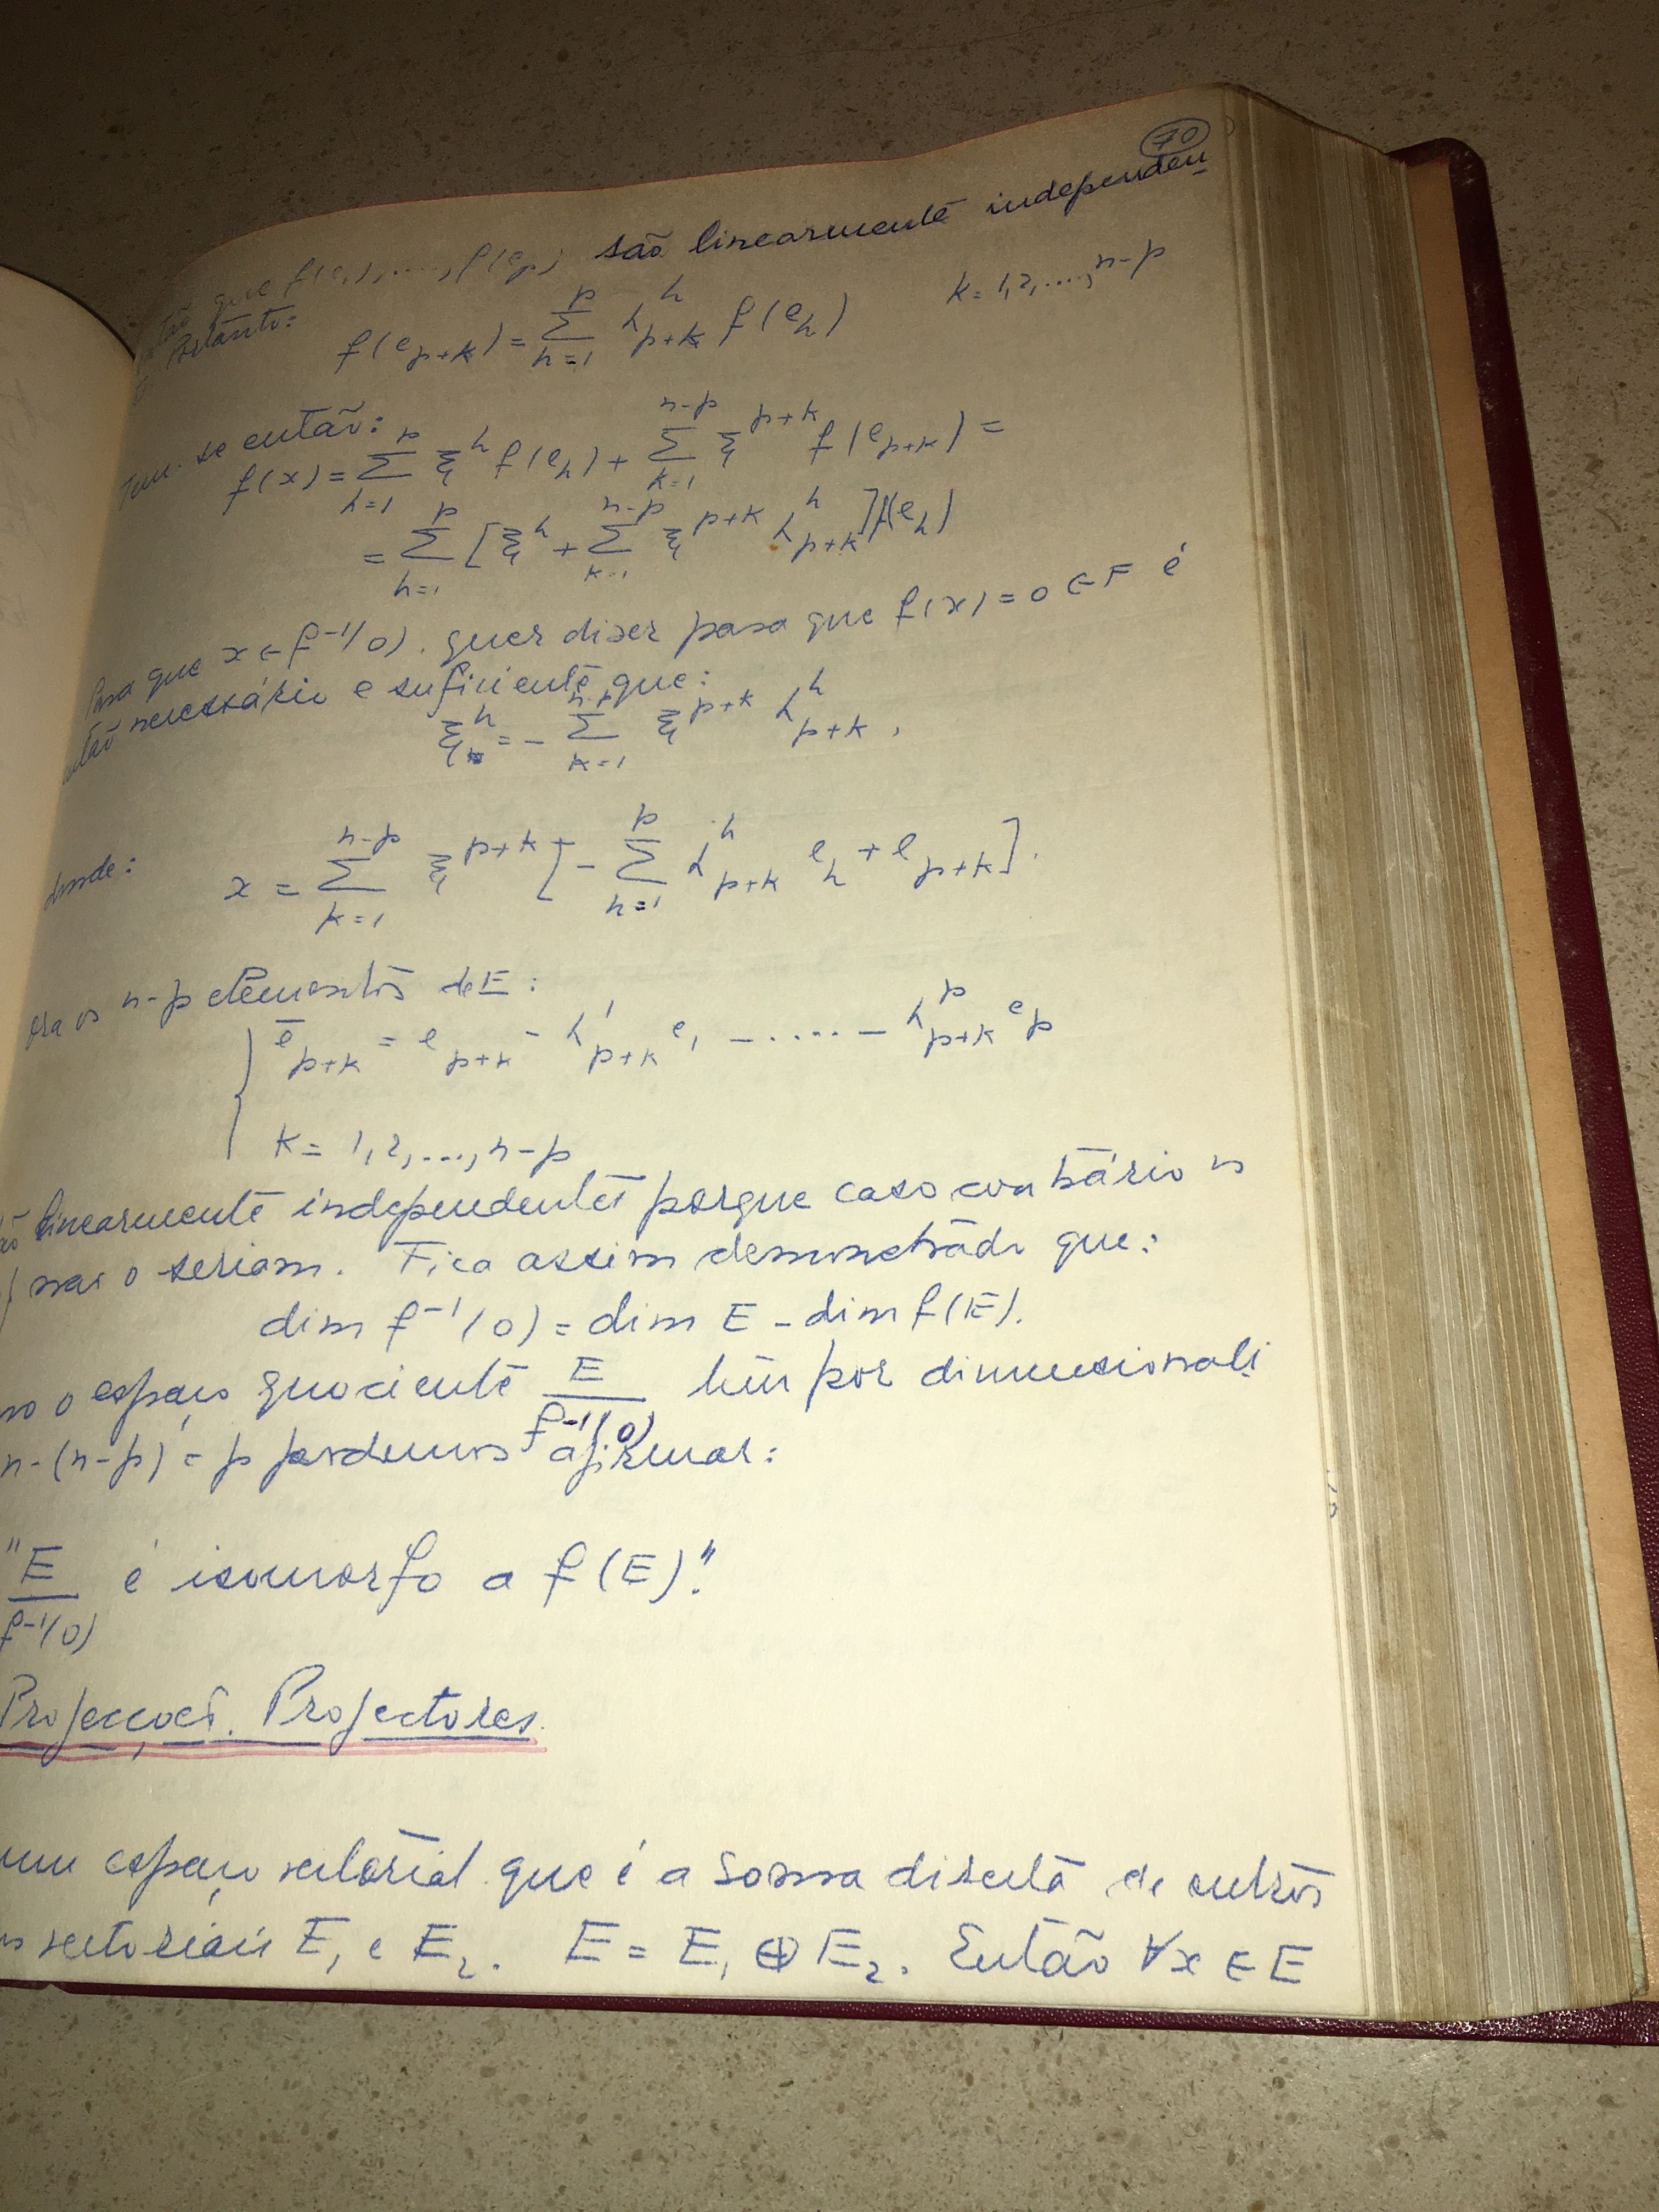 70
que f(e₁), ...., f(eₚ) são linearmente independen-
Portanto:
f(e_{p+k}) = Σ_{h=1}^{p} λ^h_{p+k} f(e_h) k = 1, 2, ...., n-p
Tem-se então:
f(x) = Σ_{h=1}^{p} ξ^h f(e_h) + Σ_{k=1}^{n-p} ξ^{p+k} f(e_{p+k}) =
= Σ_{h=1}^{p} [ξ^h + Σ_{k=1}^{n-p} ξ^{p+k} λ^h_{p+k}] f(e_h)
Para que x ∈ f⁻¹(0), quer dizer para que f(x) = 0 ∈ F é
então necessário e suficiente que:
ξ^h = - Σ_{k=1}^{n-p} ξ^{p+k} λ^h_{p+k},
donde:
x = Σ_{k=1}^{n-p} ξ^{p+k} [- Σ_{h=1}^{p} λ^h_{p+k} e_h + e_{p+k}].
ora os n-p elementos de E:
{ ē_{p+k} = e_{p+k} - λ^1_{p+k} e₁ - ..... - λ^p_{p+k} e_p
k = 1, 2, ..., n-p
linearmente independentes porque caso contrário os
nao o seriam. Fica assim demonstrado que:
dim f⁻¹(0) = dim E - dim f(E).
o espaço quociente E/f⁻¹(0) tem por dimensionali-
n-(n-p) = p podemos afirmar:
"E/f⁻¹(0) é isomorfo a f(E)".
Projecções. Projectores.
um espaço vectorial que é a soma directa de outros
vectoriais E₁ e E₂. E = E₁ ⊕ E₂. Então ∀x ∈ E